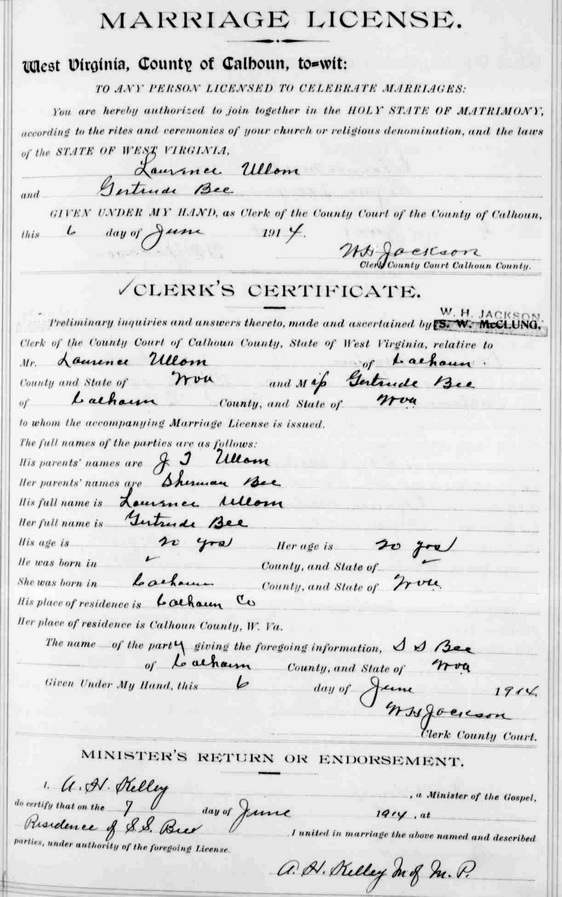 MARRIAGE LICENSE.
West Virginia, County of Calhoun, to=wit:
TO ANY PERSON LICENSED TO CELEBRATE MARRIAGES:
You are hereby authorized to join together in the HOLY STATE OF MATRIMONY,
according to the rites and ceremonies of your church or religious denomination, and the laws
of the STATE OF WEST VIRGINIA,
Lawrence Ullom
and Gertrude Bee
GIVEN UNDER MY HAND, as Clerk of the County Court of the County of Calhoun,
this 6 day of June 1914.
W H Jackson
Clerk County Court Calhoun County.
CLERK'S CERTIFICATE.
W. H. JACKSON
Preliminary inquiries and answers thereto, made and ascertained by S. W. McCLUNG,
Clerk of the County Court of Calhoun County, State of West Virginia, relative to
Mr. Lawrence Ullom of Calhoun
County and State of Wva and Miss Gertrude Bee
of Calhoun County, and State of Wva
to whom the accompanying Marriage License is issued.
The full names of the parties are as follows:
His parents' names are J T Ullom
Her parents' names are Sherman Bee
His full name is Lawrence Ullom
Her full name is Gertrude Bee
His age is 20 yrs Her age is 20 yrs
He was born in County, and State of
She was born in Calhoun County, and State of Wva
His place of residence is Calhoun Co
Her place of residence is Calhoun County, W. Va.
The name of the party giving the foregoing information, S S Bee
of Calhoun County, and State of Wva
Given Under My Hand, this 6 day of June 1914
W H Jackson
Clerk County Court.
MINISTER'S RETURN OR ENDORSEMENT.
I, A. H. Kelley, a Minister of the Gospel,
do certify that on the 7 day of June 1914, at
Residence of S.S. Bee, I united in marriage the above named and described
parties, under authority of the foregoing License.
A. H. Kelley M of M. P.